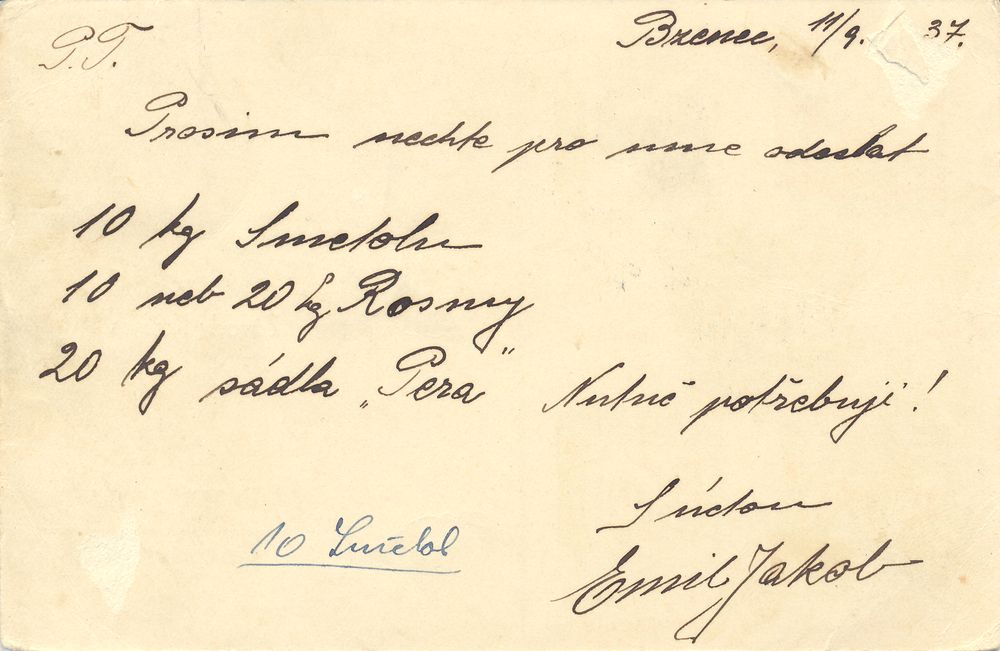 P.T.
Bzenec, 11/9. 37.
Prosim nechte pro mne odeslat
10 kg Smetolu
10 neb 20 kg Rosmy
20 kg sádla „Pera"
Nutně potřebuji!
S úctou
Emil Jakob
10 Smetol